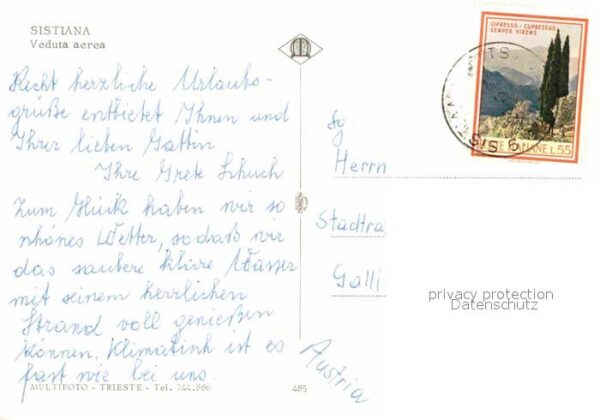 SISTIANA
Veduta aerea
Recht herzliche Urlaubs-
grüße entbietet Ihnen und
Ihrer lieben Gattin
Ihre Grete Schuch
Zum Glück haben wir so
schönes Wetter, sodaß wir
das saubere klare Wasser
mit seinem herrlichen
Strand voll genießen
können. Klimatisch ist es
fast wie bei uns.
MULTIFOTO - TRIESTE - Tel. 744.886
485
CIPRESSO - CUPRESSUS
SEMPER VIRENS
POSTE ITALIANE L.55
Sg.
Herrn
Stadtra
Galli
Austria
privacy protection
Datenschutz